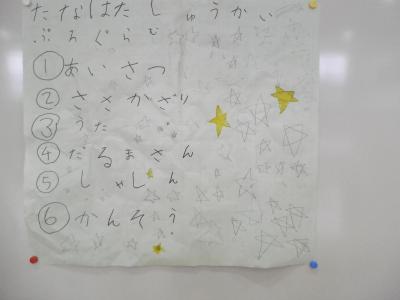 たなばたしゅうかい
ぷろぐらむ
①あいさつ
②ささかざり
③うた
④だるまさん
⑤しゃしん
⑥かんそう